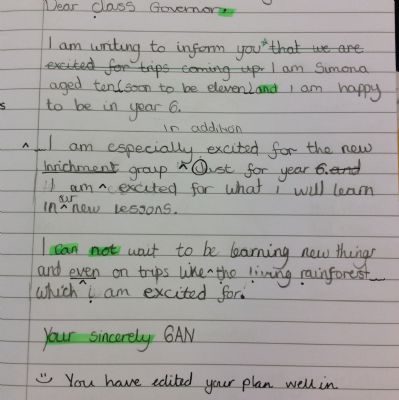 Dear Class Governor.
I am writing to inform you that we are
excited for trips coming up. I am Simona
aged ten(soon to be eleven) and i am happy
s to be in year 6.
In addition
^ I am especially excited for the new
Inrichment group ^ Just for year 6. and
I am ^ excited for what i will learn
our
in ^ new lessons.
I can not wait to be learning new things
and even on trips like ^ the living rainforest
which ^ i am excited for.
Your sincerely 6AN
You have edited your plan well in